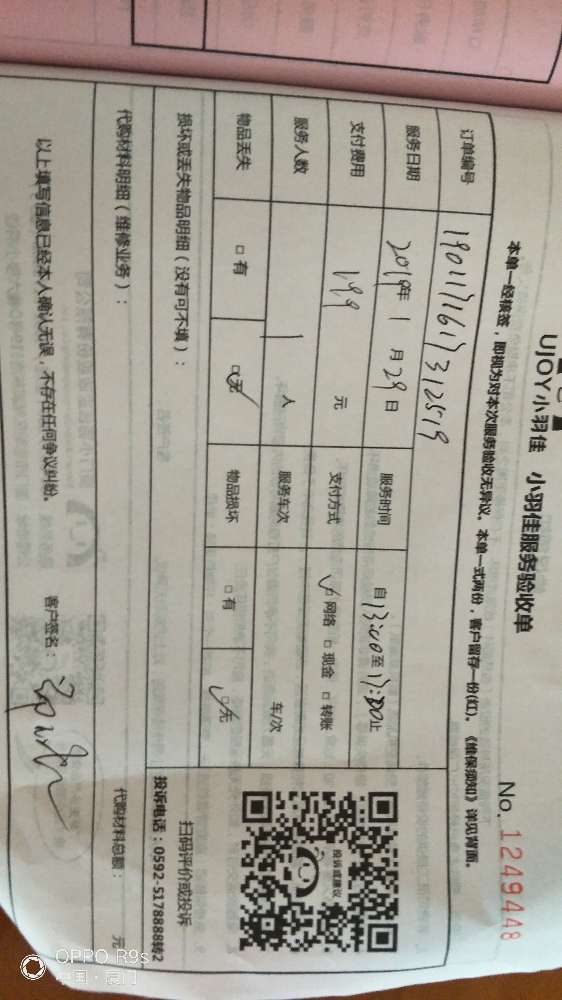 UJOY小羽佳 小羽佳服务验收单
No. 1249448
本单一经核签，即视为对本次服务验收无异议。本单一式两份，客户留存一份(红)。《维保须知》详见背面。
订单编号
服务日期 2019年 1月29日 服务时间 自13:00至17:00止
支付费用 199 元 支付方式 ☑网络 □现金 □转账
服务人数 1 人 服务车次 车/次
物品丢失 □有 ☑无 物品损坏 □有 ☑无
损坏或丢失物品明细（没有可不填）：
扫码评价或投诉
投诉电话：0592-5178888转2
投诉或建议
代购材料明细（维修业务）： 代购材料总额： 元
以上填写信息已经本人确认无误，不存在任何争议纠纷。 客户签名：
OPPO R9s
中国·厦门